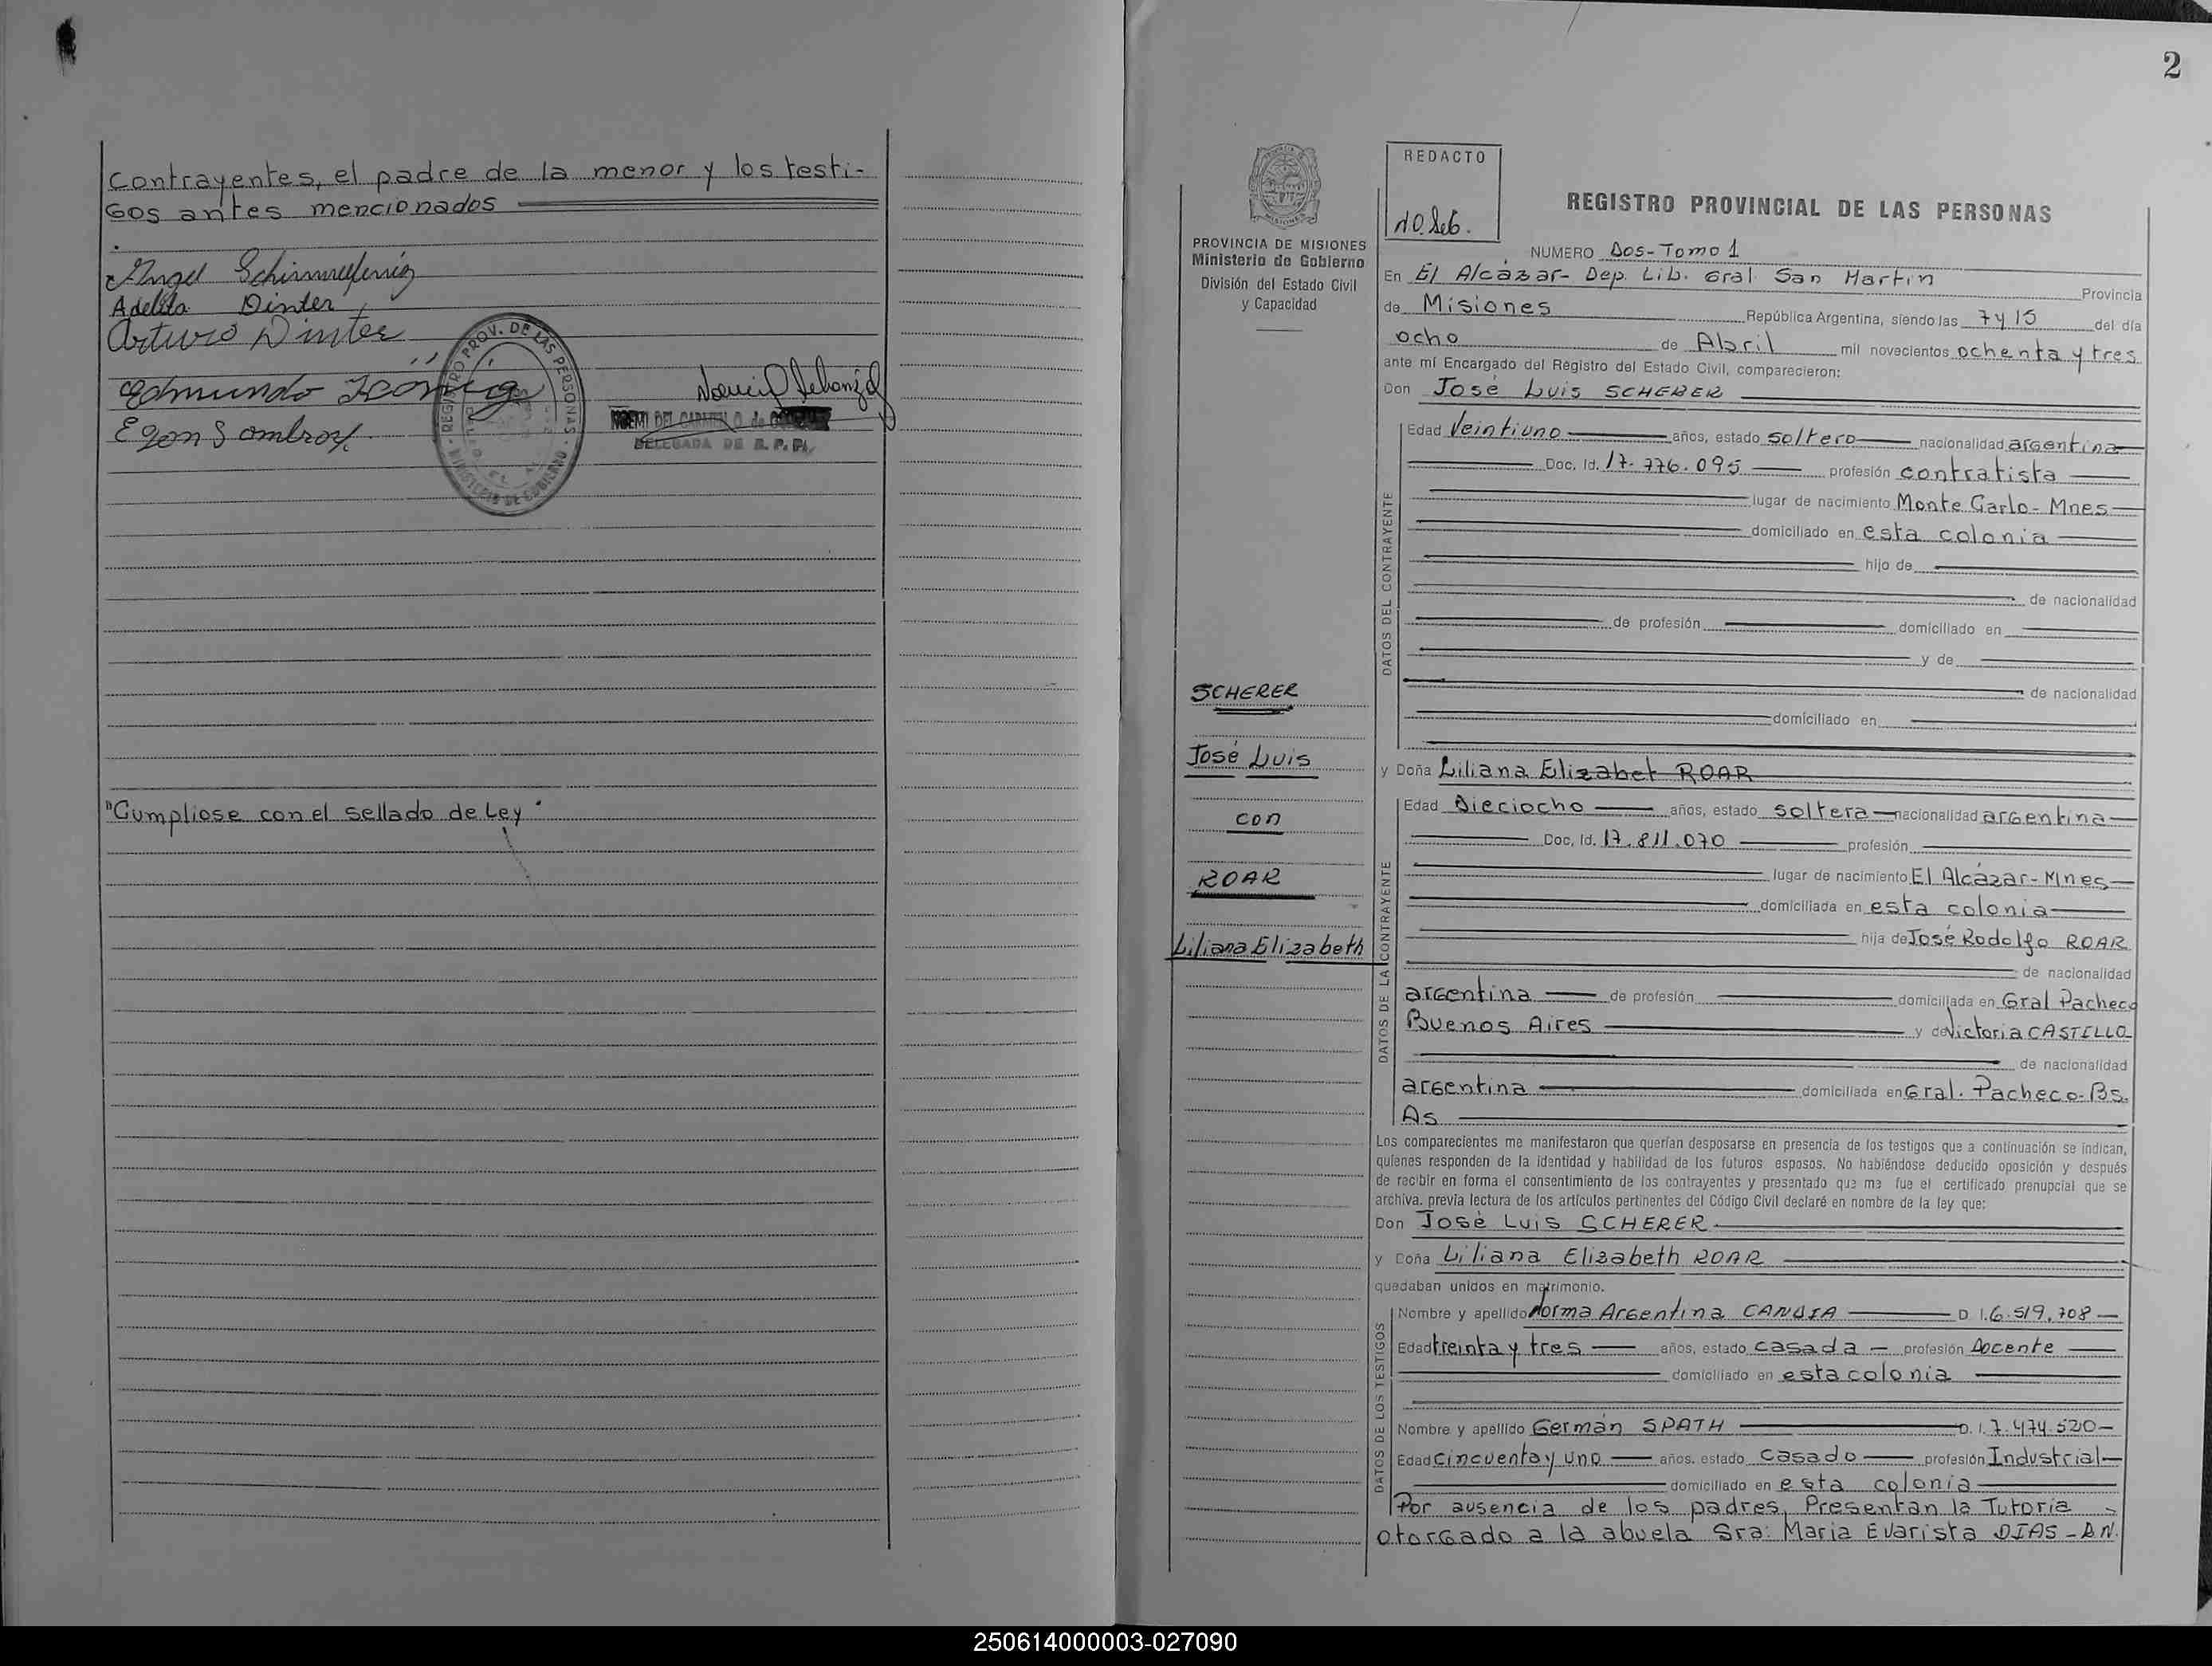 Contrayentes, el padre de la menor y los testi-
gos antes mencionados
Angel
Adelita Dinter
Arturo Dinter
Edmundo
Egon
REGISTRO PROV. DE LAS PERSONAS
MINISTERIO DE GOBIERNO
NOEMI DEL CARMEN O. de
DELEGADA DE R. P. P.
"Cumpliose con el sellado de Ley"
2
PROVINCIA DE MISIONES
Ministerio de Gobierno
División del Estado Civil
y Capacidad
REDACTO
REGISTRO PROVINCIAL DE LAS PERSONAS
NUMERO Dos-Tomo 1
En El Alcázar- Dep. Lib. Gral San Martin Provincia
de Misiones República Argentina, siendo las 7 y 15 del día
ocho de Abril mil novecientos ochenta y tres
ante mí Encargado del Registro del Estado Civil, comparecieron:
Don José Luis SCHERER
Edad Veintiuno años, estado soltero nacionalidad argentina
Doc. Id. 17.776.095 profesión contratista
lugar de nacimiento Monte Carlo- Mnes
domiciliado en esta colonia
hijo de
de nacionalidad
de profesión domiciliado en
y de
de nacionalidad
domiciliado en
DATOS DEL CONTRAYENTE
SCHERER
José Luis
con
ROAR
Liliana Elizabeth
y Doña Liliana Elizabet ROAR
Edad Dieciocho años, estado soltera nacionalidad argentina
Doc. Id. 17.811.070 profesión
lugar de nacimiento El Alcázar- Mnes
domiciliada en esta colonia
hija de José Rodolfo ROAR
de nacionalidad
argentina de profesión domiciliada en Gral Pacheco
Buenos Aires y de Victoria CASTILLO
de nacionalidad
argentina domiciliada en Gral. Pacheco- Bs.
As
DATOS DE LA CONTRAYENTE
Los comparecientes me manifestaron que querían desposarse en presencia de los testigos que a continuación se indican,
quienes responden de la identidad y habilidad de los futuros esposos. No habiéndose deducido oposición y después
de recibir en forma el consentimiento de los contrayentes y presentado que me fue el certificado prenupcial que se
archiva, previa lectura de los artículos pertinentes del Código Civil declaré en nombre de la ley que:
Don José Luis SCHERER
y Doña Liliana Elizabeth ROAR
quedaban unidos en matrimonio.
Nombre y apellido Norma Argentina CANDIA D I.6.519.708
Edad treinta y tres años, estado casada profesión Docente
domiciliado en esta colonia
Nombre y apellido Germán SPATH D. I. 7.474.520
Edad Cincuenta y uno años, estado casado profesión Industrial
domiciliado en esta colonia
DATOS DE LOS TESTIGOS
Por ausencia de los padres, Presentan la Tutoria
otorgado a la abuela Sra: Maria Evarista DIAS - D.N.
250614000003-027090